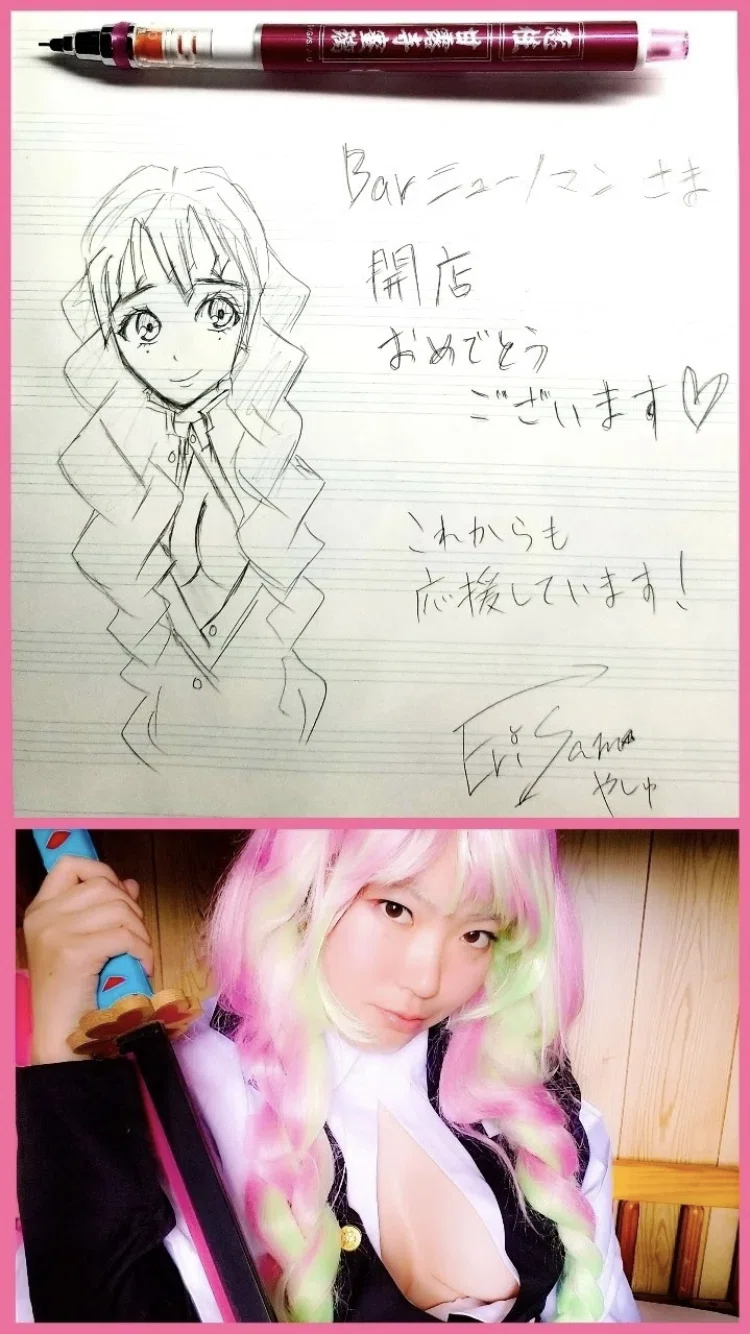 恋柱 甘露寺蜜璃
Barニューノマンさま
開店
おめでとう
ございます♡
これからも
応援しています!
Eri Sama
やしゅ